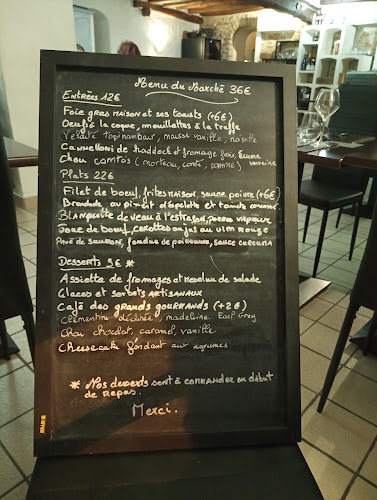 Menu du Marché 36€
Entrées 12€
Foie gras maison et ses toasts (+6€)
Oeufs à la coque, mouillettes à la truffe
Velouté topinambour, mousse vanille, noisette
Cannelloni de haddock et fromage frais,
Chou comtois (morteau, comté, pomme)
Plats 22€
Filet de boeuf, frites maison, sauce poivre (+6€)
Brandade au piment d'espelette et
Blanquette de veau à l'estragon, pommes vapeur
Joue de boeuf, carottes au jus au vin rouge
Pavé de saumon, fondue de poireaux, sauce curcuma
Desserts 9€ *
Assiette de fromages et Mesclun de salade
Glaces et sorbets Artisanaux
Café des grands gourmands (+2€)
Clémentine déclinée, madeleine Earl Grey
Chou chocolat, caramel, vanille
Cheesecake fondant aux agrumes
* Nos desserts sont à commander au début
de repas.
Merci.